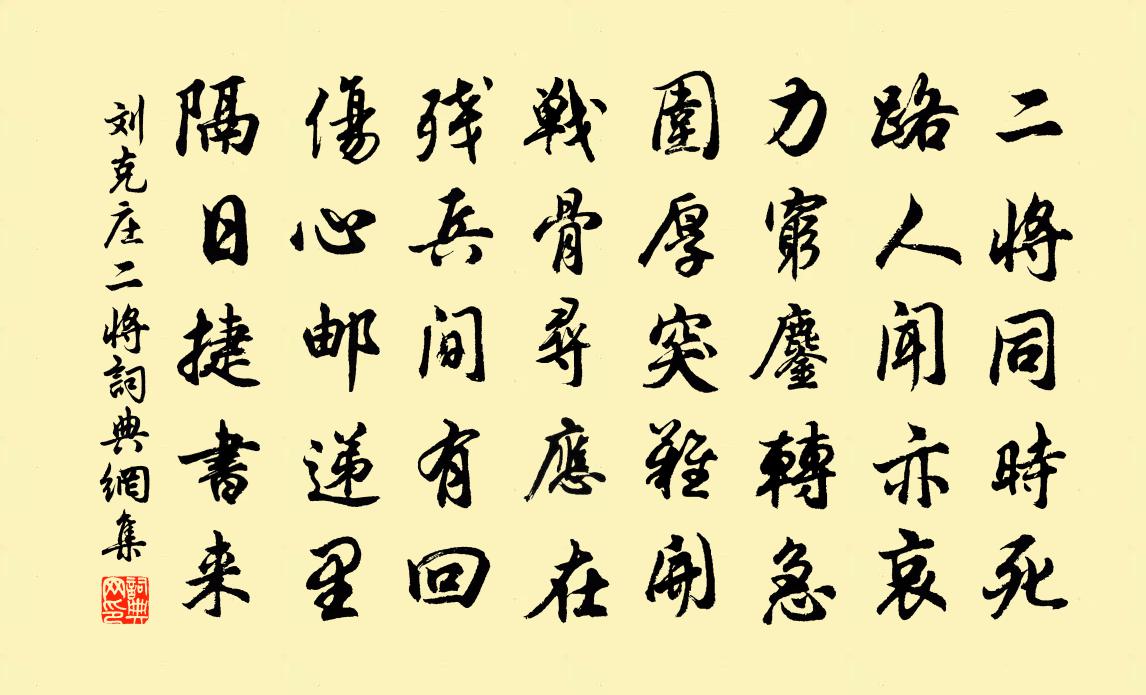 二将同時死
路人闻亦哀
力窮鏖轉急
圍厚突難開
戦骨尋應在
残兵间有回
傷心邮递里
隔日捷書来
刘克庄二将詞典網集
詞典网印